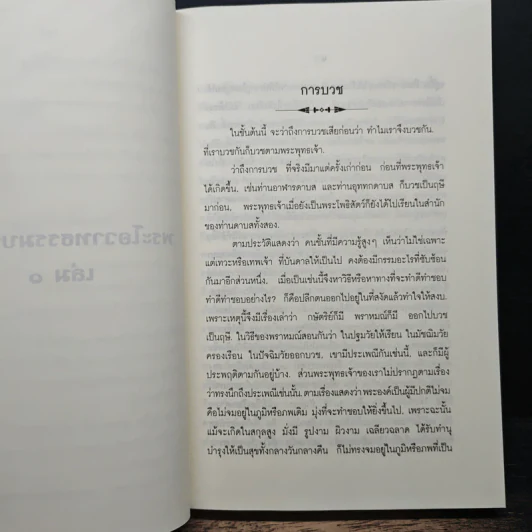 การบวช
ในชั้นต้นนี้ จะว่าถึงการบวชเสียก่อนว่า ทำไมเราจึงบวชกัน.
ที่เราบวชกันก็บวชตามพระพุทธเจ้า.
ว่าถึงการบวช ที่จริงมีมาแต่ครั้งเก่าก่อน ก่อนที่พระพุทธเจ้า
ได้เกิดขึ้น, เช่นท่านอาฬารดาบส และท่านอุททกดาบส ก็บวชเป็นฤษี
มาก่อน, พระพุทธเจ้าเมื่อยังเป็นพระโพธิสัตว์ก็ยังได้ไปเรียนในสำนัก
ของท่านดาบสทั้งสอง.
ตามประวัติแสดงว่า คนชั้นที่มีความรู้สูงๆ เห็นว่าไม่ใช่เฉพาะ
แต่เทวะหรือเทพเจ้า ที่บันดาลให้เป็นไป คงต้องมีกรรมอะไรที่ซับซ้อน
กันมาอีกส่วนหนึ่ง, เมื่อเป็นเช่นนี้จงหาวิธีหรือหาทางที่จะทำดีทำชอบ
ทำดีทำชอบอย่างไร? ก็คือปลีกตนออกไปอยู่ในที่สงัดแล้วทำใจให้สงบ,
เพราะเหตุนี้จึงมีเรื่องเล่าว่า กษัตริย์ก็มี พราหมณ์ก็มี ออกไปบวช
เป็นฤษี, ในวิธีของพราหมณ์สอนกันว่า ในปฐมวัยให้เรียน ในมัชฌิมวัย
ครองเรือน ในปัจฉิมวัยออกบวช, เขามีประเพณีกันเช่นนี้, และก็มีผู้
ประพฤติตามกันอยู่บ้าง. ส่วนพระพุทธเจ้าของเราไม่ปรากฏตามเรื่อง
ว่าทรงนึกถึงประเพณีเช่นนั้น, ตามเรื่องแสดงว่าพระองค์เป็นผู้มีปกติไม่จม
คือไม่จมอยู่ในภูมิหรือภพเดิม มุ่งที่จะทำชอบให้ยิ่งขึ้นไป, เพราะฉะนั้น
แม้จะเกิดในสกุลสูง มั่งมี รูปงาม ผิวงาม เฉลียวฉลาด ได้รับทำนุ
บำรุงให้เป็นสุขทั้งกลางวันกลางคืน ก็ไม่ทรงจมอยู่ในภูมิหรือภพที่เป็น